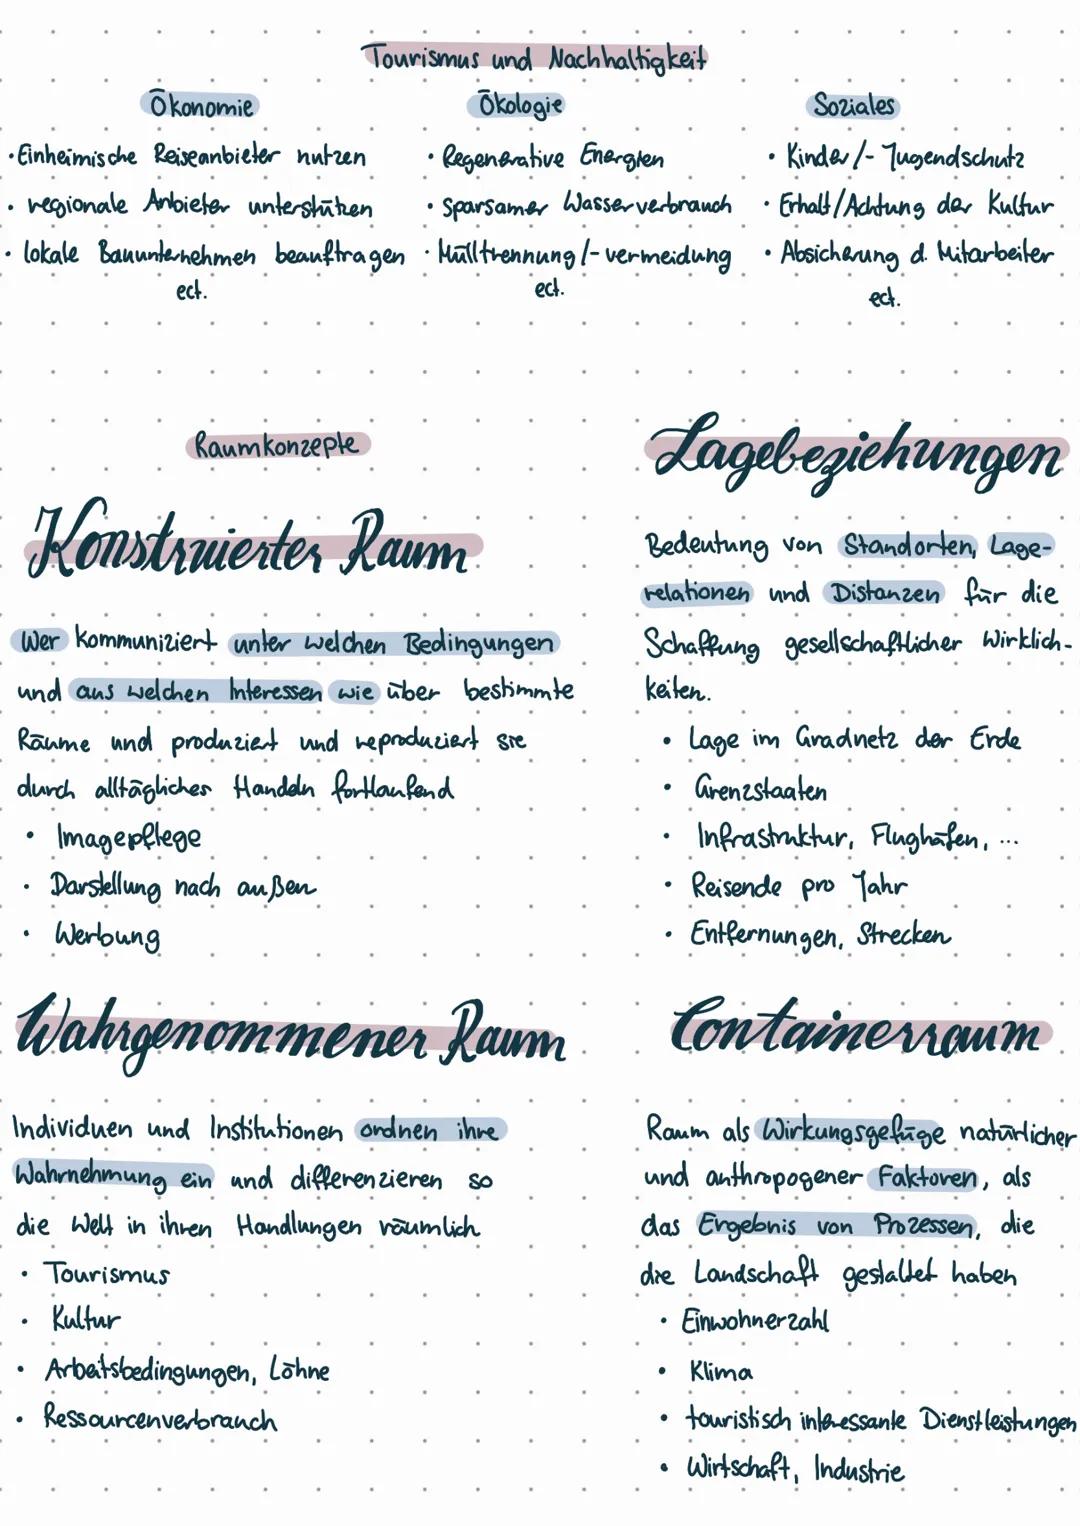 Tourismus und Nachhaltigkeit
Ökonomie
• Einheimische Reiseanbieter nutzen
• regionale Anbieter unterstützen
• lokale Bauunternehmen beauftragen
ect.
Ökologie
• Regenerative Energien
• sparsamer Wasserverbrauch
• Mülltrennung/-vermeidung
ect.
Soziales
• Kinder/- Jugendschutz
• Erhalt/Achtung der Kultur
• Absicherung d. Mitarbeiter
ect.
Raumkonzepte
Konstruierter Raum
Wer kommuniziert unter welchen Bedingungen
und aus welchen Interessen wie über bestimmte
Räume und produziert und reproduziert sie
durch alltägliches Handeln fortlaufend
• Imagepflege
• Darstellung nach außen
• Werbung
Lagebeziehungen
Bedeutung von Standorten, Lage-
relationen und Distanzen für die
Schaffung gesellschaftlicher Wirklich-
keiten.
• Lage im Gradnetz der Erde
• Grenzstaaten
• Infrastruktur, Flughäfen, ...
• Reisende pro Jahr
• Entfernungen, Strecken
Wahrgenommener Raum
Individuen und Institutionen ordnen ihre
Wahrnehmung ein und differenzieren so
die Welt in ihren Handlungen räumlich
• Tourismus
• Kultur
• Arbeitsbedingungen, Löhne
• Ressourcenverbrauch
Containerraum
Raum als Wirkungsgefüge natürlicher
und anthropogener Faktoren, als
das Ergebnis von Prozessen, die
die Landschaft gestaltet haben
• Einwohnerzahl
• Klima
• touristisch interessante Dienstleistungen
• Wirtschaft, Industrie